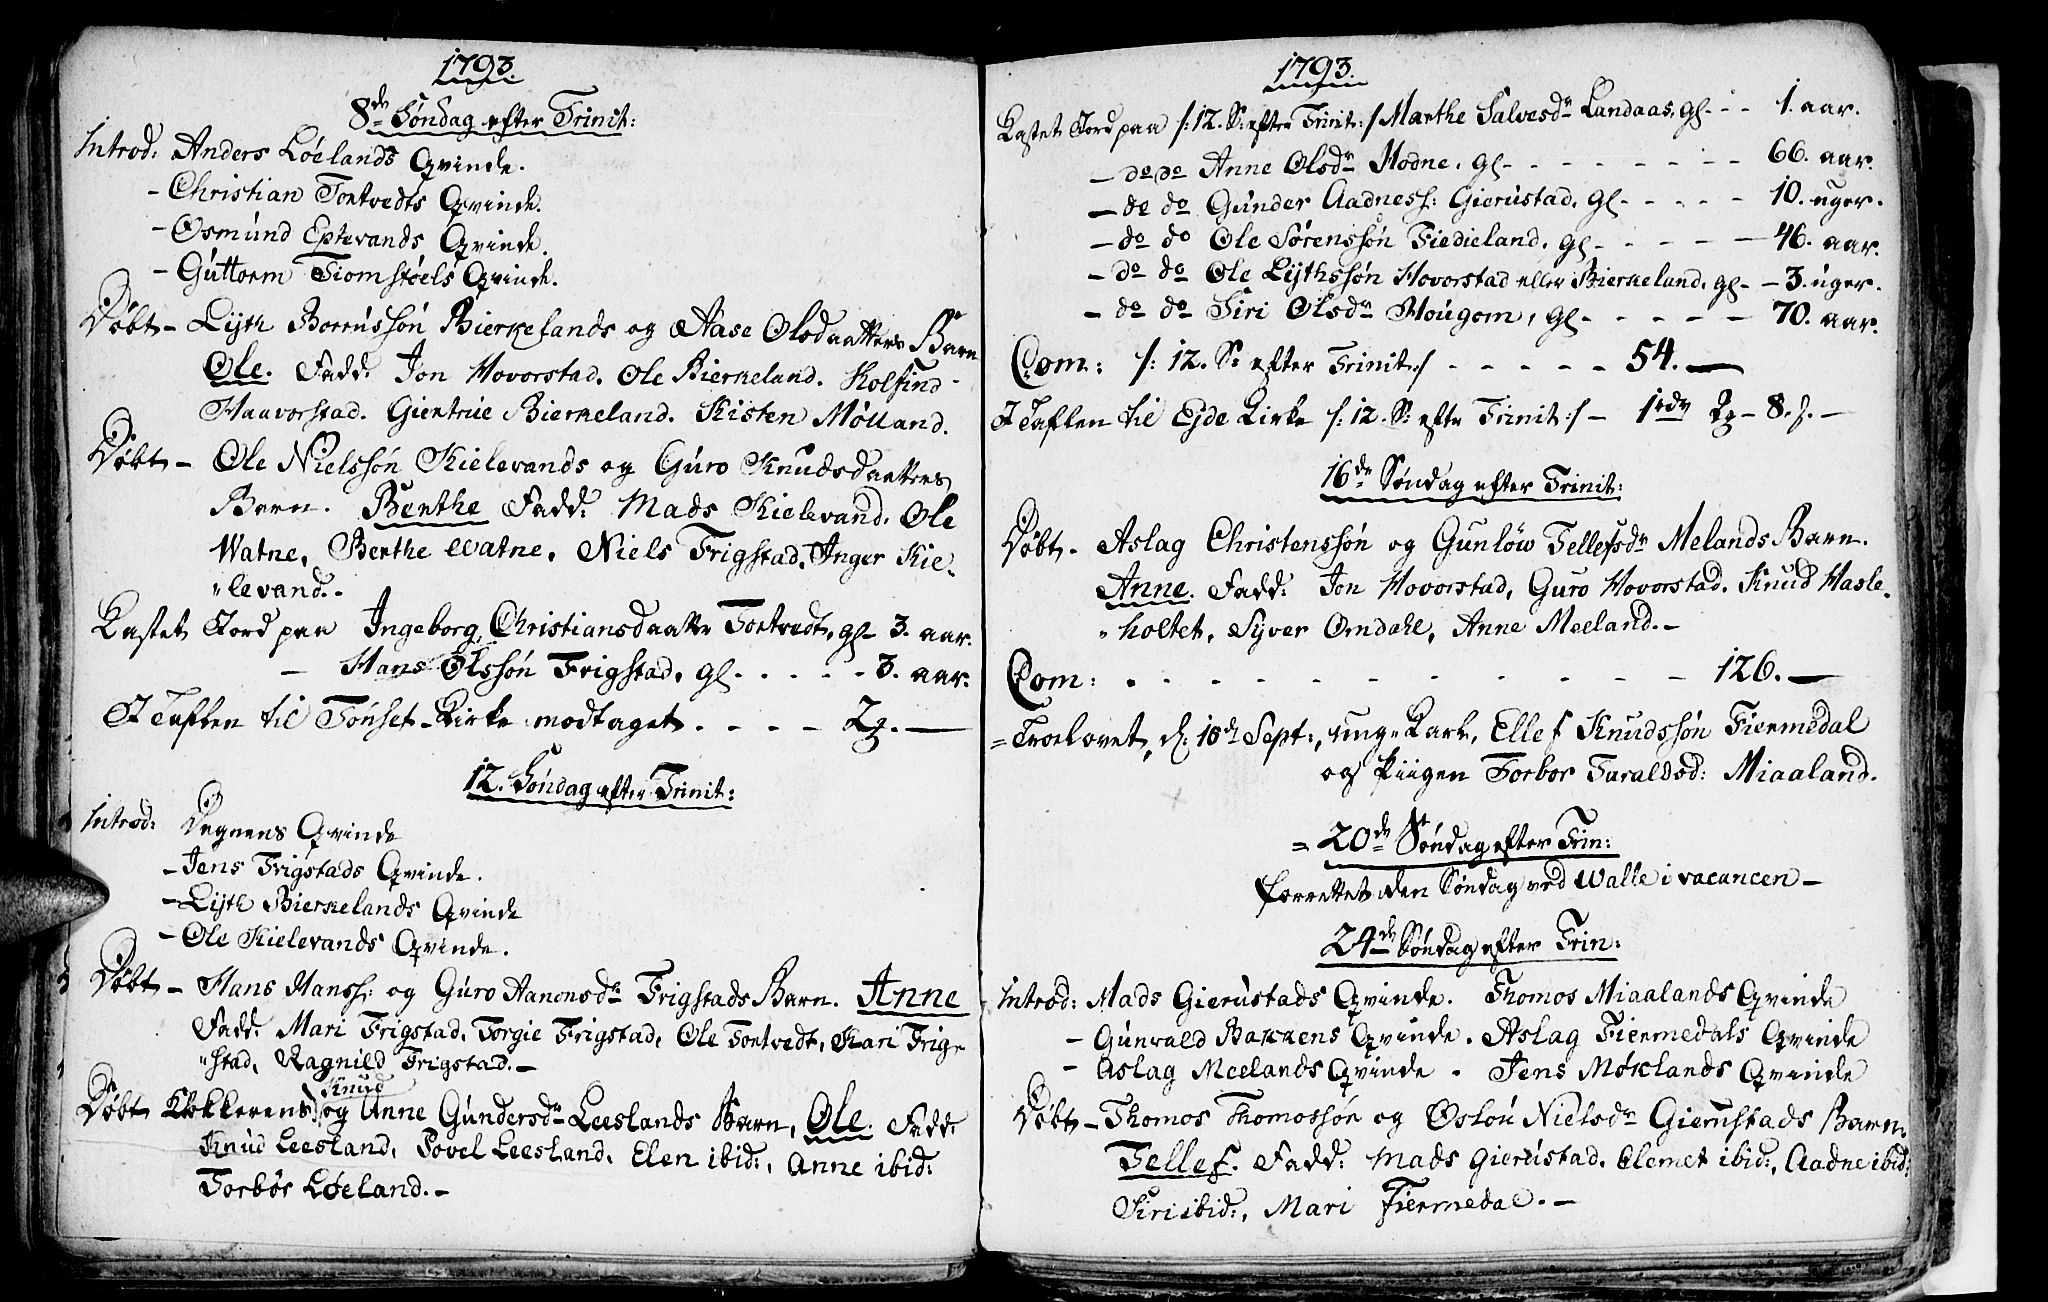 1793.
8de Søndag efter Trinit:
Introd: Anders Løelands Qvinde.
- Christian Tortvedts Qvinde.
- Osmund Eptevands Qvinde.
- Guttorm Tiomstøels Qvinde.
Døbt - Lyth Borrussøn Bierkelands og Aase Olsdaatters Barn
Ole. Fadd: Jon Hovorstad. Ole Bierkeland. Kolfind
Haavorstad. Giertrue Bierkeland. Kisten Mølland.
Døbt - Ole Nielssøn Kielevands og Guro Knudsdaatters
Barn. Berthe Fadd: Mads Kielevand. Ole
Watne, Berthe Watne, Niels Frigstad, Inger Kie-
"levand.-
Kastet Jord paa Ingeborg Christiansdaatter Tortvedt, gl- 3. aar.
- Hans Olssøn Frigstad, gl - - - - - 3. aar.
I Taflen til Tonset-Kirke modtaget - - - -
12. Søndag efter Trinit:
Introd: Degnens Qvinde
- Jens Frigstads Qvinde.
- Lyth Bierkelands Qvinde
- Ole Kielevands Qvinde.
Døbt - Hans Hanss: og Guro Aanonsdr Frigstads Barn. Anne
Fadd: Mari Frigstad, Torgie Frigstad, Ole Tortvedt, Kari Frig-
"stad, Ragnild Frigstad.-
Knud
Døbt Klokkerens og Anne Gundersdr Leeslands Barn, Ole. Fadd:
Knud Leesland, Povel Leesland, Elen ibid:, Anne ibid:
Torbør Løeland.-
1793.
Kastet Jord paa /:12. S: efter Trinit:/ Marthe Salvesdr Landaas, gl - - - 1. aar.
- do do Anne Olsdr Hodne, gl - - - - - - - - 66. aar.
- do do Gunder Aadness: Gierustad, gl - - - - - 10. uger.
- do do Ole Sørenssøn Fiedieland, gl - - - - - 46. aar.
- do do Ole Lythssøn Hovorstad eller Bierkeland, gl - - 3. uger.
- do do Siri Olsdr Hougom, gl - - - - - 70. aar.
Com: /:12. S: efter Trinit:/ - - - - - 54.-
I Taflen til Ejde Kirke /:12. S: efter Trinit:/ - 8.
16de Søndag efter Trinit:
Døbt - Aslag Christenssøn og Gunløw Tellefsdr Melands Barn.
Anne. Fadd: Jon Hovorstad, Guro Hovorstad. Knud Hasle-
"holtet, Syver Omdahl, Anne Meeland.-
Com: - - - - - - - - - 126.-
Troelovet, d: 18de Sept:, unge Karl, Ellef Knudssøn Fiermedal
og Piigen Torbor Taraldsd: Miaaland.
20de Søndag efter Trin:
forrettet den Søndag ved Walle i vacancen -
24de Søndag efter Trin:
Introd: Mads Gierustads Qvinde. Thomos Miaalands Qvinde
- Gunvald Bakkens Qvinde. Aslag Fiermedals Qvinde
- Aslag Meelands Qvinde - Jens Møklands Qvinde
Døbt - Thomos Thomossøn og Oslou Nielsdr Gierustads Barn:
Tellef. Fadd: Mads Gierustad. Olemet ibid:, Aadne ibid:
Siri ibid:, Mari Fiermedal.-